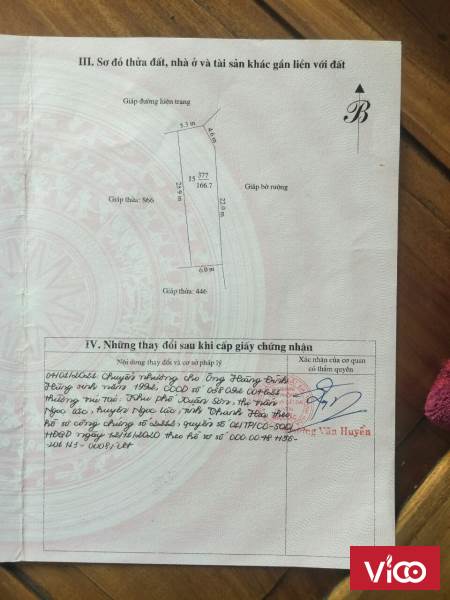 III. Sơ đồ thửa đất, nhà ở và tài sản khác gắn liền với đất
Giáp đường hiện trạng
B
5.3 m
4.6 m
15 377
166.7
Giáp bờ ruộng
Giáp thửa: 866
25.9 m
22.0 m
6.0 m
Giáp thửa: 446
IV. Những thay đổi sau khi cấp giấy chứng nhận
Nội dung thay đổi và cơ sở pháp lý
Xác nhận của cơ quan
có thẩm quyền
Chuyển nhượng cho Ông Hoàng Đình
sinh năm CCCD số
thường trú tại: Khu phố Xuân Sơn, thị trấn
Ngọc Lặc, huyện Ngọc Lặc, tỉnh Thanh Hóa theo
hồ sơ công chứng số quyển số
HĐGD ngày theo hồ sơ số
Văn Huyền
ViCO